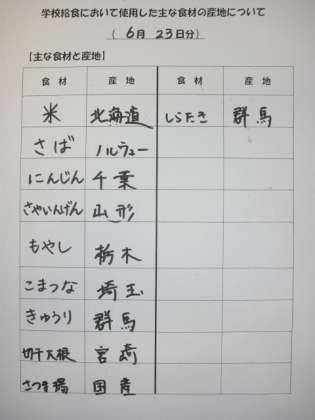 学校給食において使用した主な食材の産地について
( 6月 23日分)
【主な食材と産地】
食材 産地 食材 産地
米 北海道 しらたき 群馬
さば ノルウェー
にんじん 千葉
さやいんげん 山形
もやし 栃木
こまつな 埼玉
きゅうり 群馬
切干大根 宮崎
さつま揚 国産